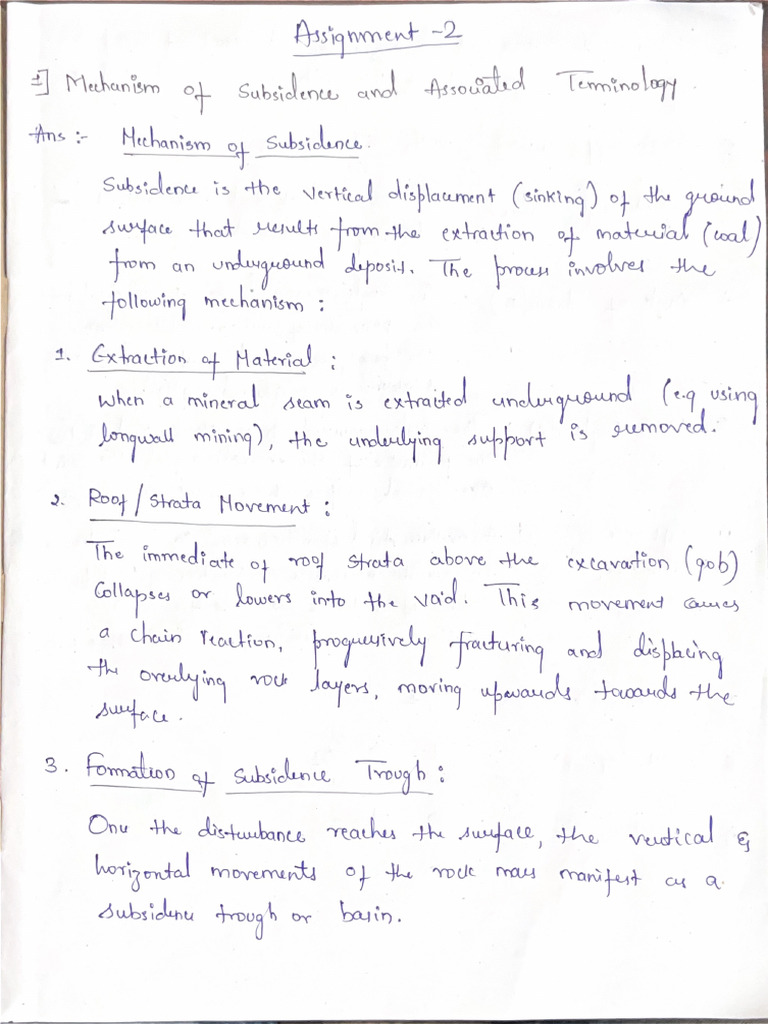 Assignment -2
1] Mechanism of Subsidence and Associated Terminology
Ans :- Mechanism of Subsidence.
Subsidence is the vertical displacement (sinking) of the ground
surface that results from the extraction of material (coal)
from an underground deposit. The process involves the
following mechanism :
1. Extraction of Material :
When a mineral seam is extracted underground (e.g using
longwall mining), the underlying support is removed.
2. Roof / Strata Movement :
The immediate of roof strata above the excavation (gob)
Collapses or lowers into the void. This movement causes
a chain reaction, progressively fracturing and displacing
the overlying rock layers, moving upwards towards the
surface.
3. Formation of Subsidence Trough :
Once the disturbance reaches the surface, the vertical &
horizontal movements of the rock mass manifest as a
subsidence trough or basin.